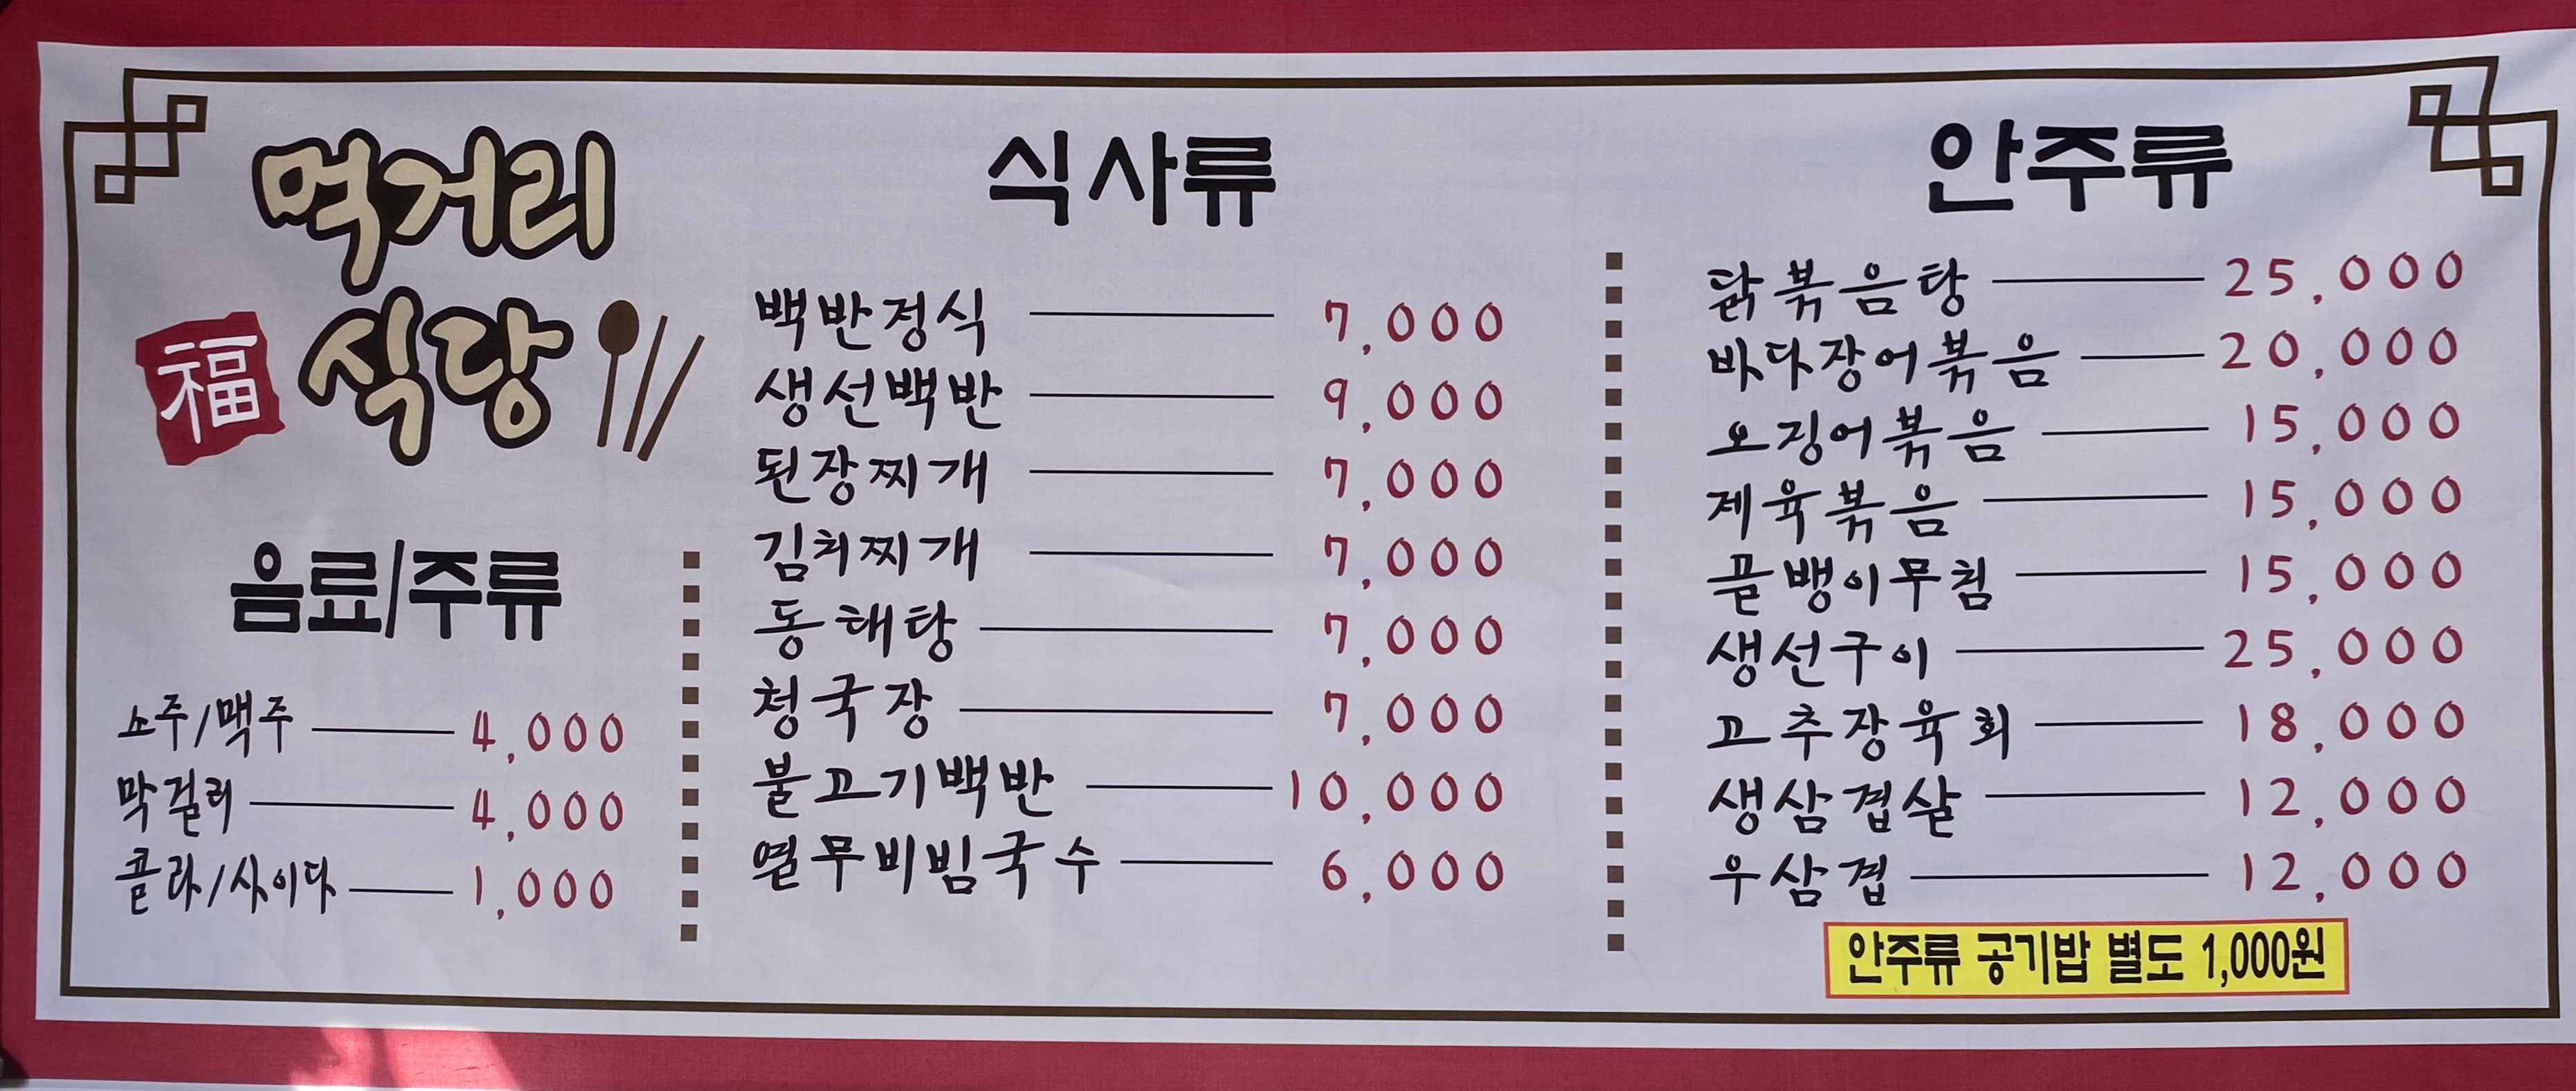 먹거리
福 식당
음료/주류
소주/맥주 4,000
막걸리 4,000
콜라/사이다 1,000
식사류
백반정식 7,000
생선백반 9,000
된장찌개 7,000
김치찌개 7,000
동태탕 7,000
청국장 7,000
불고기백반 10,000
열무비빔국수 6,000
안주류
닭볶음탕 25,000
바다장어볶음 20,000
오징어볶음 15,000
제육볶음 15,000
골뱅이무침 15,000
생선구이 25,000
고추장육회 18,000
생삼겹살 12,000
우삼겹 12,000
안주류 공기밥 별도 1,000원